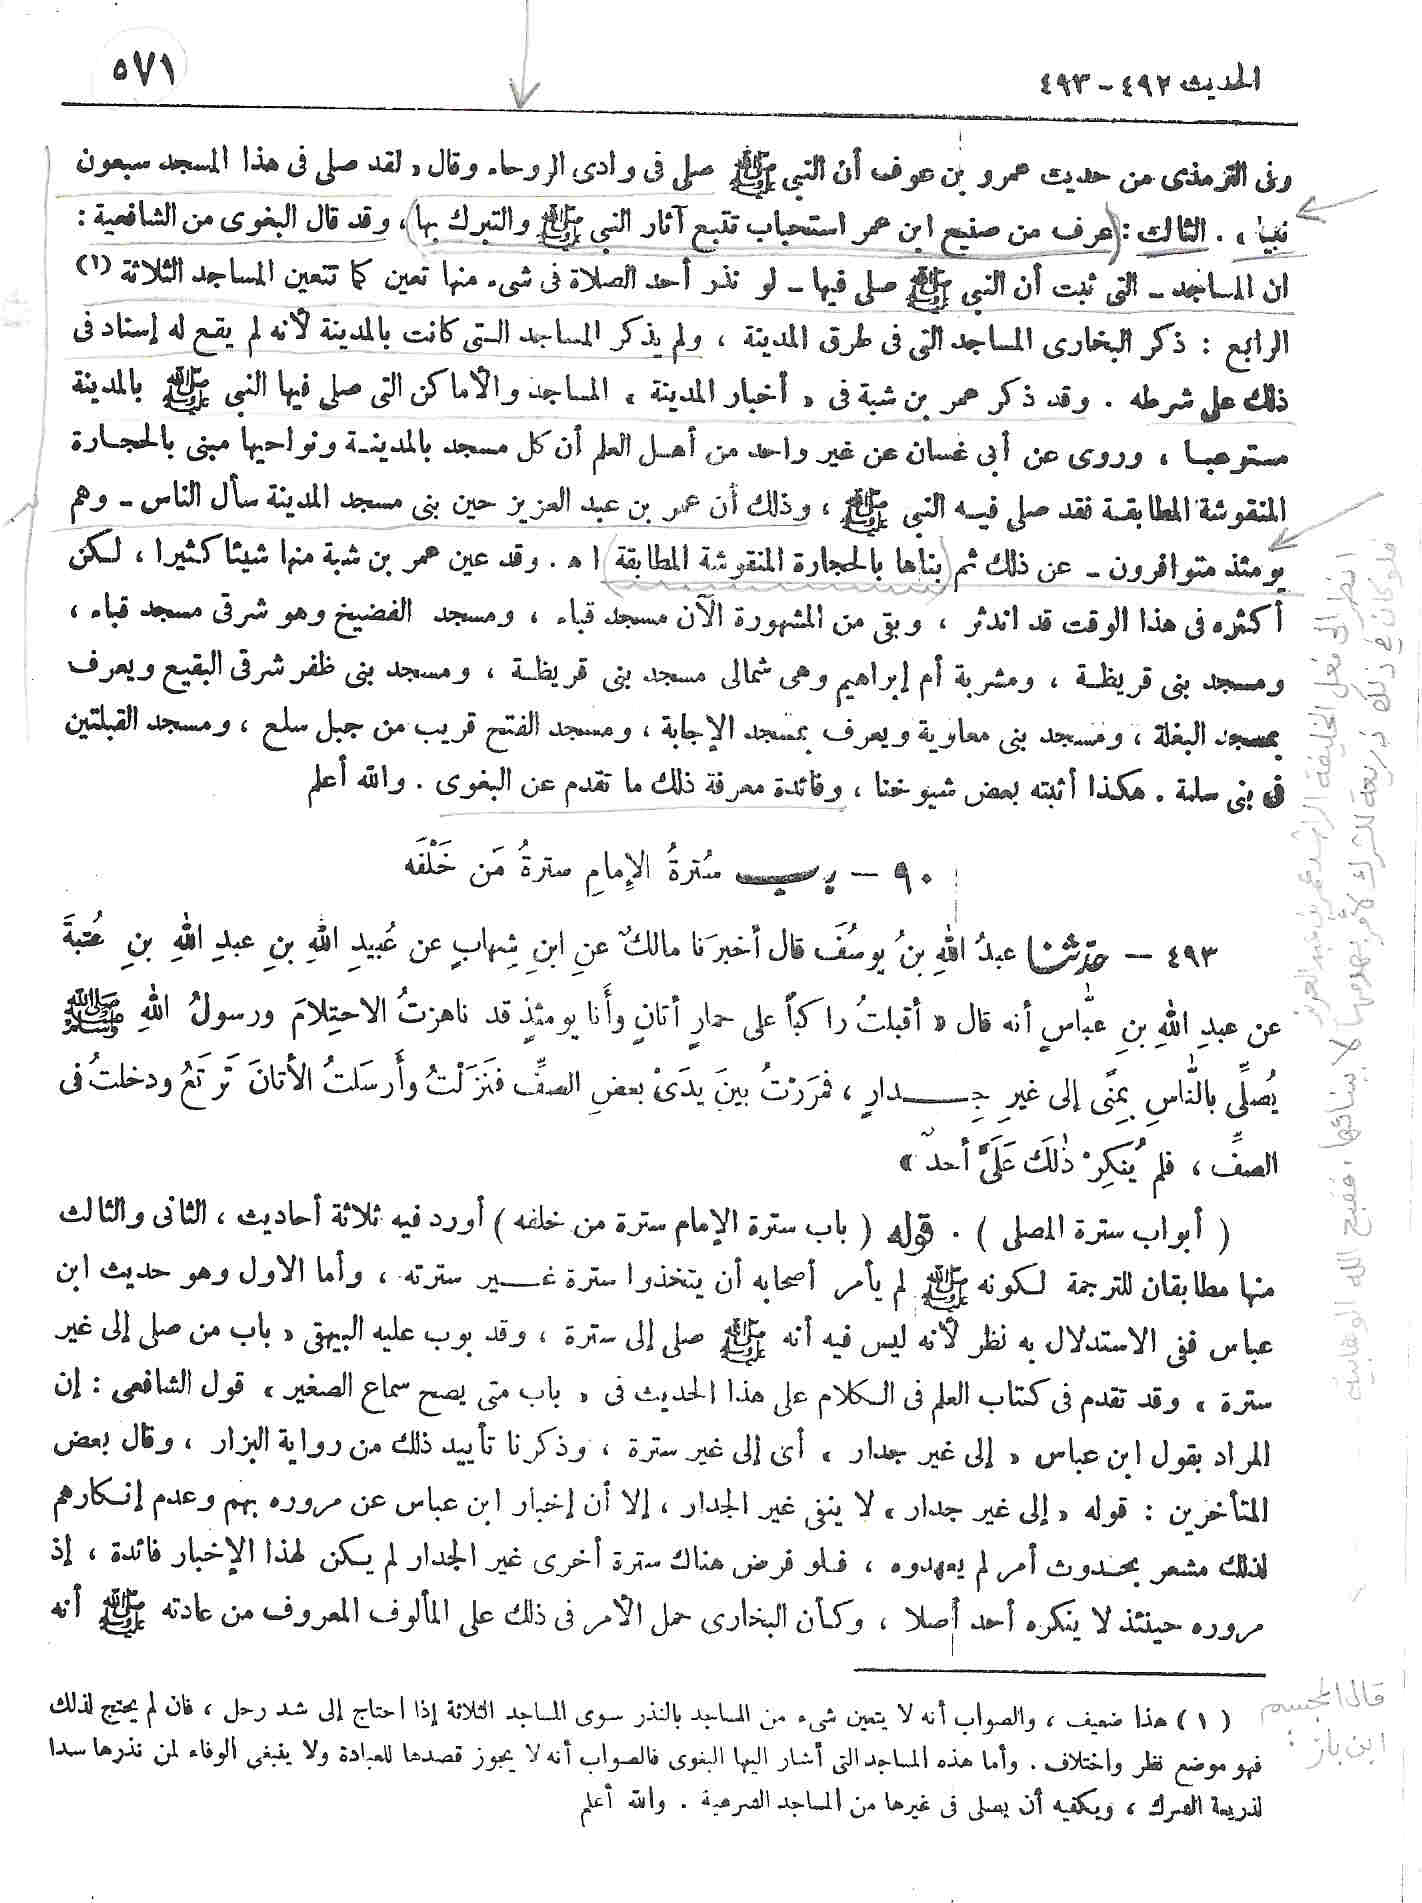 الحديث ٤٩٢ - ٤٩٣
٥٧١
وفى الترمذى من حديث عمرو بن عوف أن النبي ﷺ صلى فى وادى الروحاء وقال « لقد صلى فى هذا المسجد سبعون
نبيا » . الثالث : (عرف من صنيع ابن عمر استحباب تتبع آثار النبي ﷺ والتبرك بها) ، وقد قال البغوى من الشافعية :
ان المساجد - التى ثبت أن النبي ﷺ صلى فيها - لو نذر أحد الصلاة فى شىء منها تعين كما تتعين المساجد الثلاثة (١)
الرابع : ذكر البخارى المساجد التى فى طرق المدينة ، ولم يذكر المساجد التى كانت بالمدينة لأنه لم يقع له إسناد فى
ذلك على شرطه . وقد ذكر عمر بن شبة فى « أخبار المدينة » المساجد والأماكن التى صلى فيها النبي ﷺ بالمدينة
مستوعبا ، وروى عن أبى غسان عن غير واحد من أهل العلم أن كل مسجد بالمدينة ونواحيها مبنى بالحجارة
المنقوشة المطابقة فقد صلى فيه النبي ﷺ ، وذلك أن عمر بن عبد العزيز حين بنى مسجد المدينة سأل الناس - وهم
يومئذ متوافرون - عن ذلك ثم (بناها بالحجارة المنقوشة المطابقة) ا ه . وقد عين عمر بن شبة منها شيئا كثيرا ، لكن
أكثره فى هذا الوقت قد اندثر ، وبقى من المشهورة الآن مسجد قباء ، ومسجد الفضيخ وهو شرقى مسجد قباء ،
ومسجد بنى قريظة ، ومشربة أم إبراهيم وهى شمالى مسجد بنى قريظة ، ومسجد بنى ظفر شرقى البقيع ويعرف
بمسجد البغلة ، ومسجد بنى معاوية ويعرف بمسجد الإجابة ، ومسجد الفتح قريب من جبل سلع ، ومسجد القبلتين
فى بنى سلمة . هكذا أثبته بعض شيوخنا ، وفائدة معرفة ذلك ما تقدم عن البغوى . والله أعلم
٩٠ - باب سُترةُ الإمامِ سترةُ مَن خَلْفَه
٤٩٣ - حدّثنا عبدُ اللهِ بنُ يوسُفَ قال أخبرَنا مالكٌ عنِ ابنِ شِهابٍ عن عُبيدِ اللهِ بنِ عبدِ اللهِ بنِ عُتبةَ
عن عبدِ اللهِ بنِ عبّاسٍ أنه قال « أقبلتُ راكباً على حمارٍ أتانٍ وأنا يومئذٍ قد ناهزتُ الاحتِلامَ ورسولُ اللهِ ﷺ
يُصلِّى بالنّاسِ بِمِنًى إلى غيرِ جِدارٍ ، فمَرَرْتُ بينَ يدَىْ بعضِ الصفِّ فنَزَلْتُ وأَرسَلتُ الأتانَ تَرتَعُ ودخلتُ فى
الصفِّ ، فلم يُنكِرْ ذٰلكَ عَلَىَّ أحدٌ »
( أبواب سترة المصلى ) . قوله ( باب سترة الإمام سترة من خلفه ) أورد فيه ثلاثة أحاديث ، الثانى والثالث
منها مطابقان للترجمة لكونه ﷺ لم يأمر أصحابه أن يتخذوا سترة غير سترته ، وأما الاول وهو حديث ابن
عباس ففى الاستدلال به نظر لأنه ليس فيه أنه ﷺ صلى إلى سترة ، وقد بوب عليه البيهقى « باب من صلى إلى غير
سترة » وقد تقدم فى كتاب العلم فى الكلام على هذا الحديث فى « باب متى يصح سماع الصغير » قول الشافعى : إن
المراد بقول ابن عباس « إلى غير جدار » أى إلى غير سترة ، وذكرنا تأييد ذلك من رواية البزار ، وقال بعض
المتأخرين : قوله « إلى غير جدار » لا ينفى غير الجدار ، إلا أن إخبار ابن عباس عن مروره بهم وعدم إنكارهم
لذلك مشعر بحدوث أمر لم يعهدوه ، فلو فرض هناك سترة أخرى غير الجدار لم يكن لهذا الإخبار فائدة ، إذ
مروره حينئذ لا ينكره أحد أصلا ، وكأن البخارى حمل الأمر فى ذلك على المألوف المعروف من عادته ﷺ أنه
( ١ ) هذا ضعيف ، والصواب أنه لا يتعين شىء من المساجد بالنذر سوى المساجد الثلاثة إذا احتاج إلى شد رحل ، فان لم يحتج لذلك
فهو موضع نظر واختلاف . وأما هذه المساجد التى أشار اليها البغوى فالصواب أنه لا يجوز قصدها للعبادة ولا ينبغى الوفاء لمن نذرها سدا
لذريعة الشرك ، ويكفيه أن يصلى فى غيرها من المساجد الشرعية . والله أعلم
قال المجسم
ابن باز :
انظر إلى فعل الخليفة الراشد عمر بن عبد العزيز
فلو كان في ذلك ذريعة للشرك لأمر بهدمها لا ببنائها ، فقبح الله الوهابية